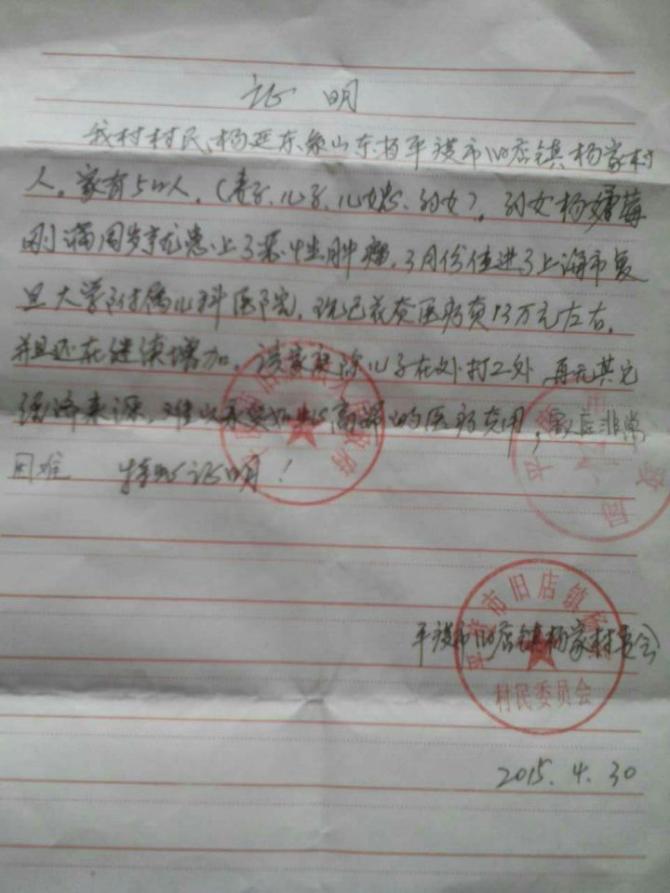 证明
我村村民杨延东系山东省平度市旧店镇杨家村
人。家有5口人,(妻子、儿子、儿媳、孙女)。孙女杨
刚满周岁就患上了恶性肿瘤,3月份住进了上海市复
旦大学附属儿科医院,现已花费医药费13万元左右,
并且还在继续增加,该家庭除儿子在外打工外,再无其它
经济来源,难以承受如此高额的医药费用,家庭非常
困难 特此证明!
平度市旧店镇杨家村委会
平度市旧店镇杨家村
村民委员会
2015.4.30